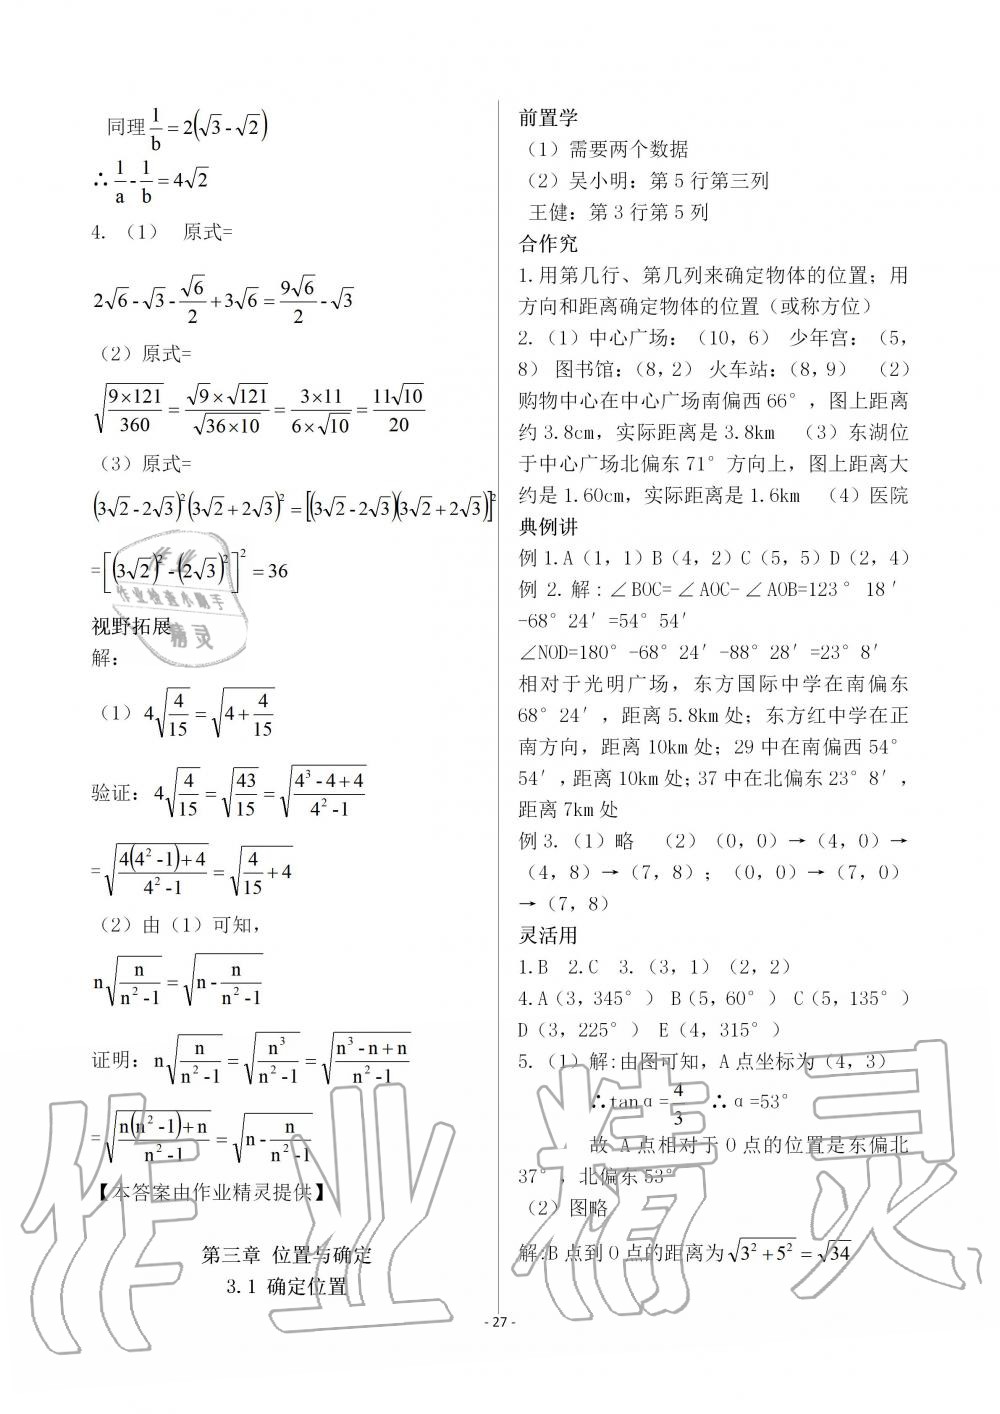 同理 1/b = 2(√3 - √2)
∴ 1/a - 1/b = 4√2
4.（1） 原式=
2√6 - √3 - √6/2 + 3√6 = 9√6/2 - √3
（2）原式=
√(9×121/360) = (√9 × √121)/√(36×10) = (3×11)/(6×√10) = 11√10/20
（3）原式=
(3√2 - 2√3)²(3√2 + 2√3)² = [(3√2 - 2√3)(3√2 + 2√3)]²
=[(3√2)² - (2√3)²]² = 36
视野拓展
解：
（1）4√(4/15) = √(4 + 4/15)
验证：4√(4/15) = √(43/15) = √((4³ - 4 + 4)/(4² - 1))
=√((4(4² - 1) + 4)/(4² - 1)) = √(4/15 + 4)
（2）由（1）可知，
n√(n/(n² - 1)) = √(n - n/(n² - 1))
证明：n√(n/(n² - 1)) = √(n³/(n² - 1)) = √((n³ - n + n)/(n² - 1))
=√((n(n² - 1) + n)/(n² - 1)) = √(n - n/(n² - 1))
【本答案由作业精灵提供】
第三章 位置与确定
3.1 确定位置
前置学
（1）需要两个数据
（2）吴小明：第 5 行第三列
王健：第 3 行第 5 列
合作究
1.用第几行、第几列来确定物体的位置；用
方向和距离确定物体的位置（或称方位）
2.（1）中心广场：（10，6） 少年宫：（5，
8） 图书馆：（8，2） 火车站：（8，9） （2）
购物中心在中心广场南偏西 66°，图上距离
约 3.8cm，实际距离是 3.8km （3）东湖位
于中心广场北偏东 71°方向上，图上距离大
约是 1.60cm，实际距离是 1.6km （4）医院
典例讲
例 1.A（1，1）B（4，2）C（5，5）D（2，4）
例 2. 解：∠BOC=∠AOC-∠AOB=123°18′
-68°24′=54°54′
∠NOD=180°-68°24′-88°28′=23°8′
相对于光明广场，东方国际中学在南偏东
68°24′，距离 5.8km 处；东方红中学在正
南方向，距离 10km 处；29 中在南偏西 54°
54′，距离 10km 处；37 中在北偏东 23°8′，
距离 7km 处
例 3.（1）略 （2）（0，0）→（4，0）→
（4，8）→（7，8）；（0，0）→（7，0）
→（7，8）
灵活用
1.B 2.C 3.（3，1）（2，2）
4.A（3，345°） B（5，60°） C（5，135°）
D（3，225°） E（4，315°）
5.（1）解：由图可知，A 点坐标为（4，3）
∴tanα=4/3 ∴α=53°
故 A 点相对于 O 点的位置是东偏北
37°，北偏东 53°
（2）图略
解：B 点到 O 点的距离为√(3² + 5²) = √34
- 27 -
作业
作业检查小助手
精灵
作业精灵